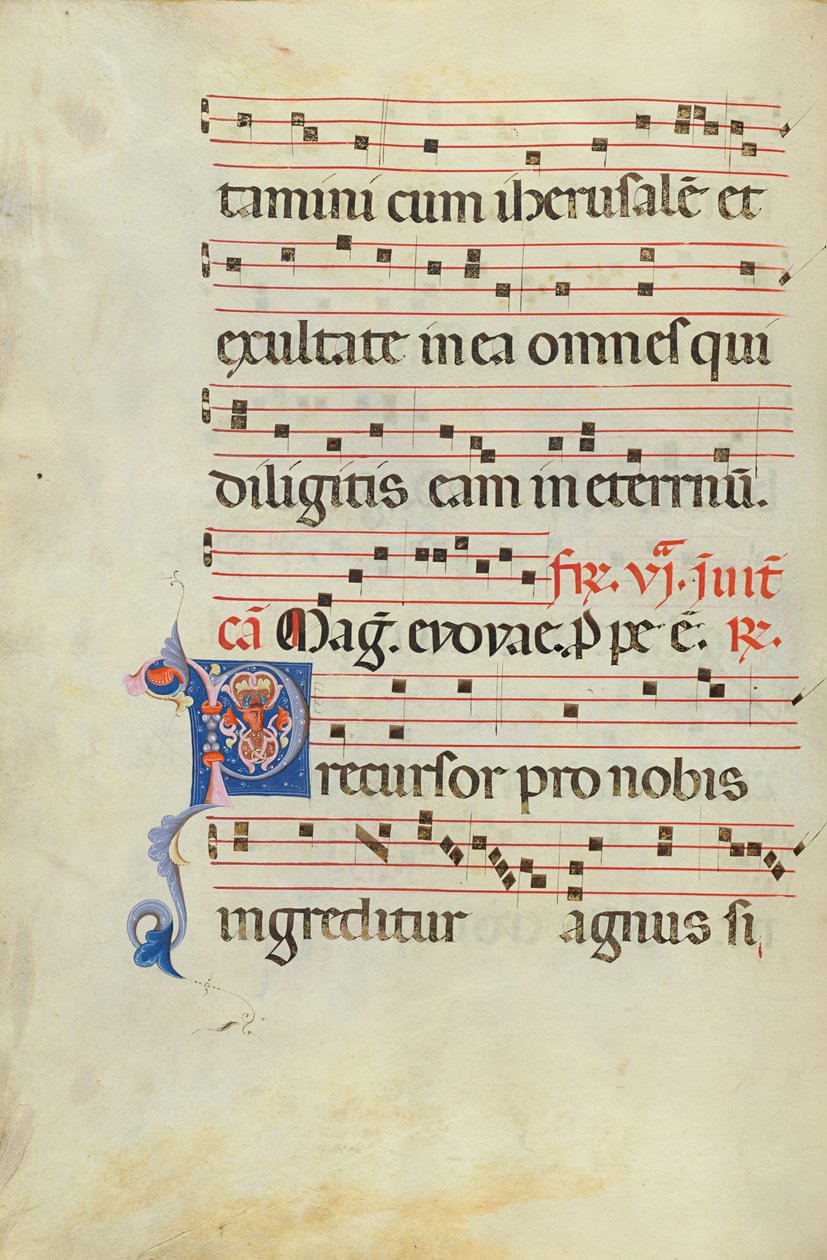 tamini cum iherusalē et
exultate in ea omnes qui
diligitis eam in eternū.
R͞. vja. 
cā Mag̃. evovae. p̄ pe ē. R͞.
Precursor pro nobis
ingreditur agnus si